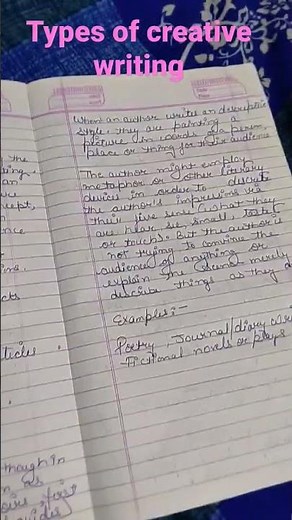 Types of creative
writing
When an author writes an descriptive
style, they are painting a
picture in words of a person,
place or thing for their audience
The author might employ
metaphor or other literary
device in order to
the author's impressions via
their five sense (what they
are hear, see, smell, taste
or touch). But the author is
not trying to convince the
audience of anything or
explain the scene merely
describe things as they d
Examples:-
Poetry, Journal/diary
Fictional novels or plays
the
an
ept,
nce
cts
ticles
though in